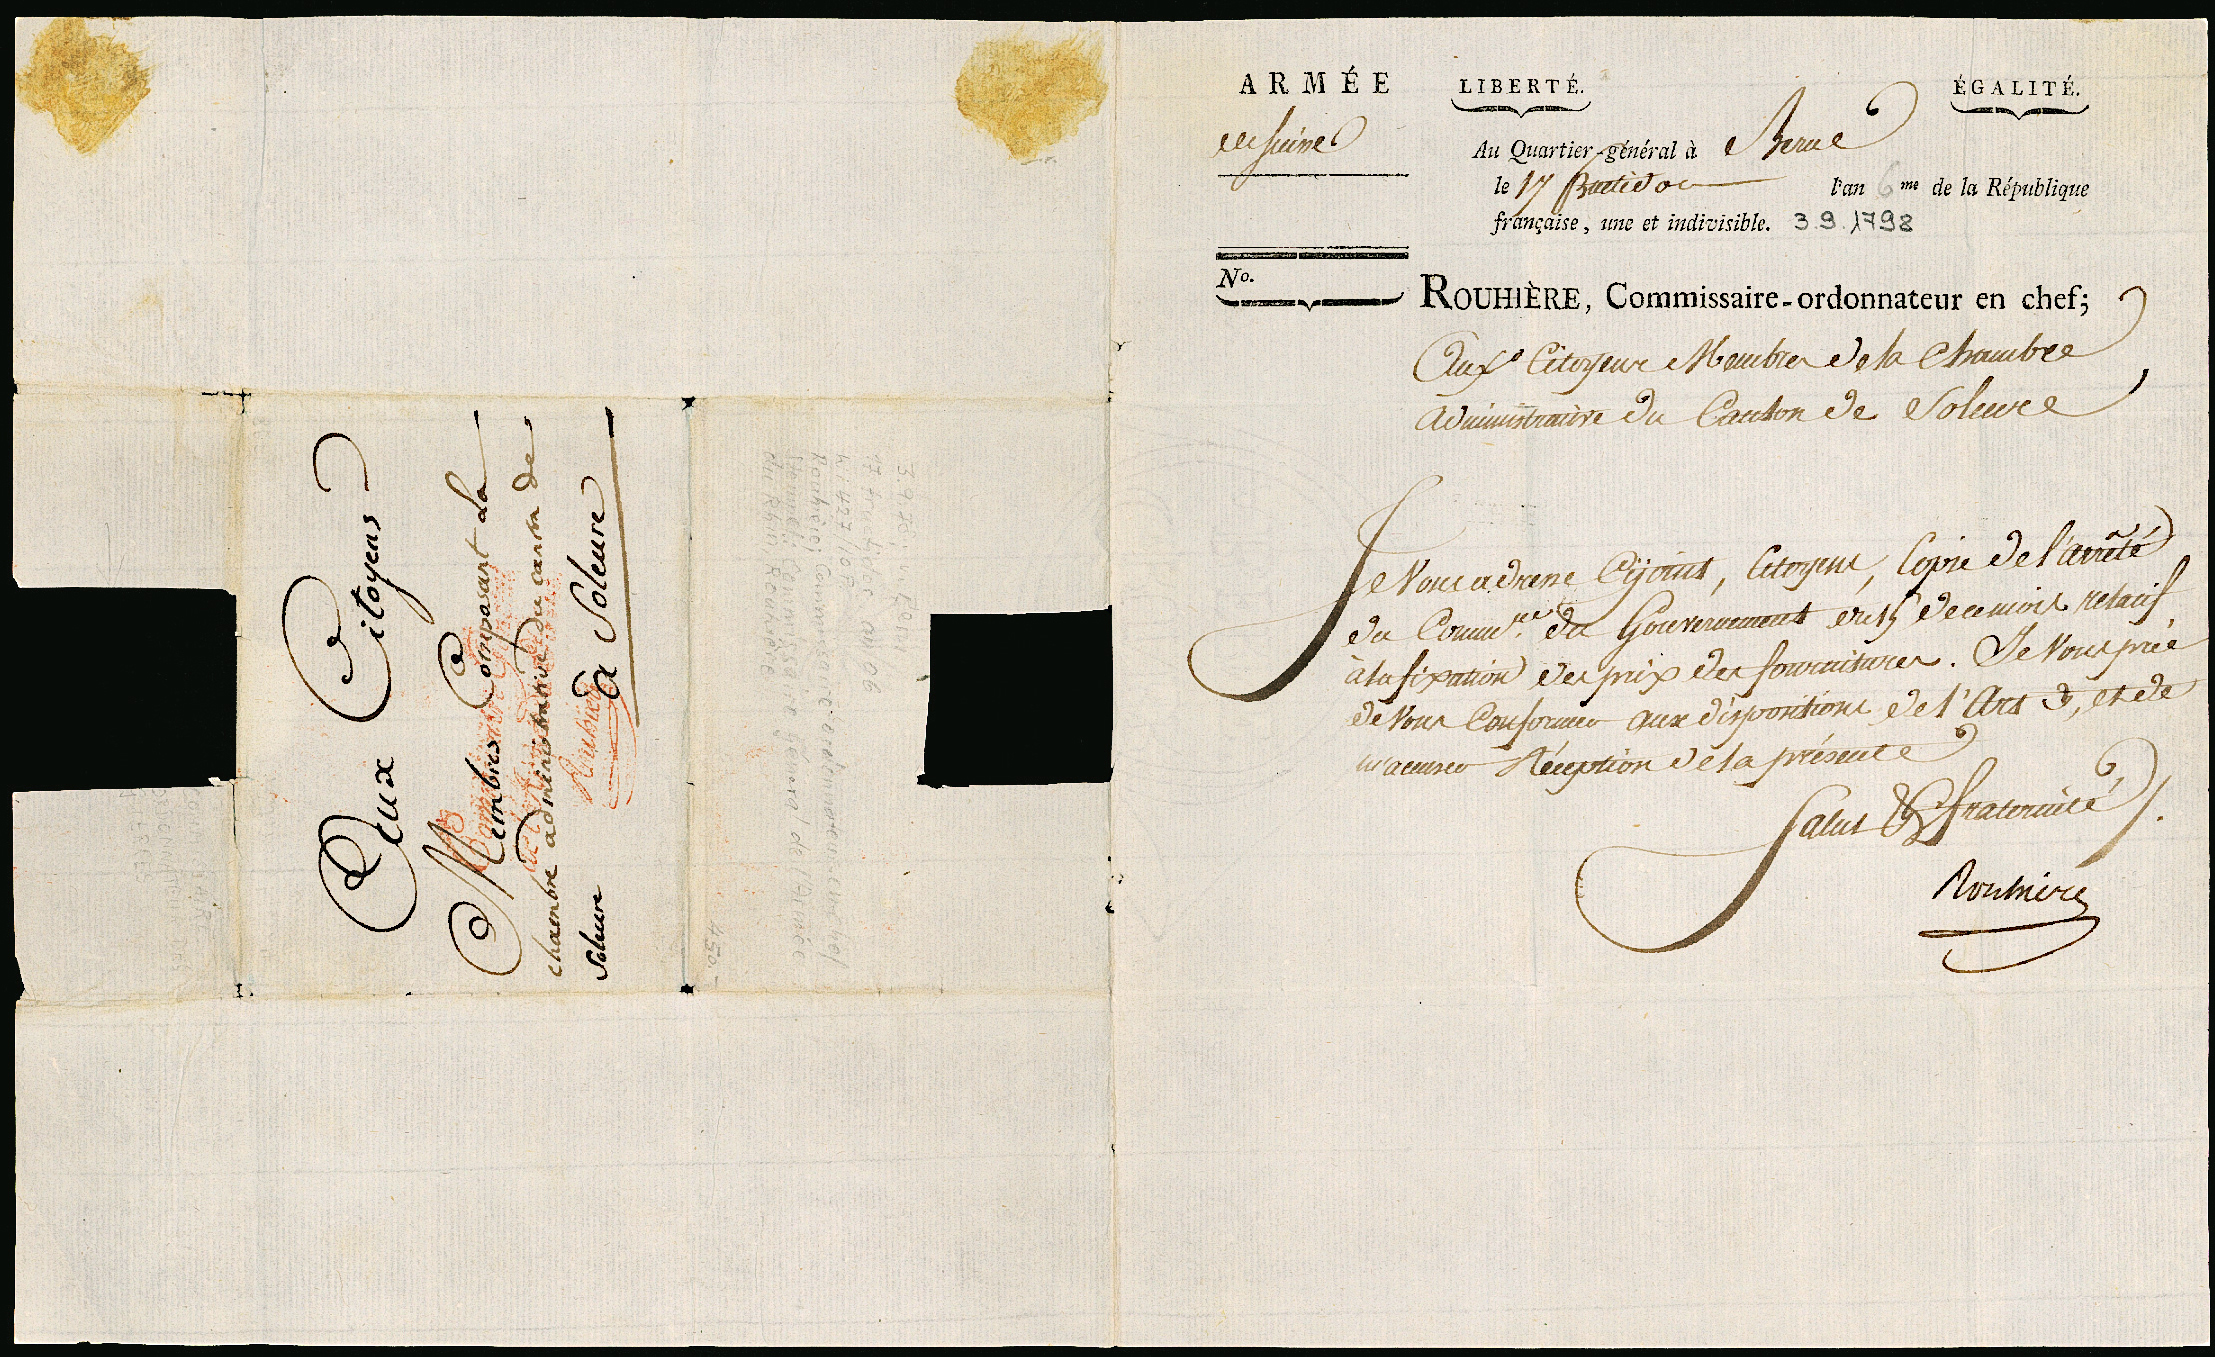 ARMÉE
LIBERTÉ.
ÉGALITÉ.
Au Quartier-général à Berne
le 17 fructidor l'an 6 me de la République
française, une et indivisible. 3.9.1798
No.
ROUHIÈRE, Commissaire-ordonnateur en chef;
Aux Citoyens Membres de la Chambre
administrative du Canton de Soleure
Je Vous adresse Cyjoint, Citoyens, Copie de l'arrêté
du Comm.re du Gouvernement du 15 de ce mois relatif
à la fixation des prix des fournitures. Je Vous prie
de Vous Conformer aux dispositions de l'Art 3, et de
m'accuser Réception de la présente
Salut & fraternité
Rouhière
Aux Citoyens
Membres Composant La
chambre administrative du canton de
Soleure à Soleure
450.-